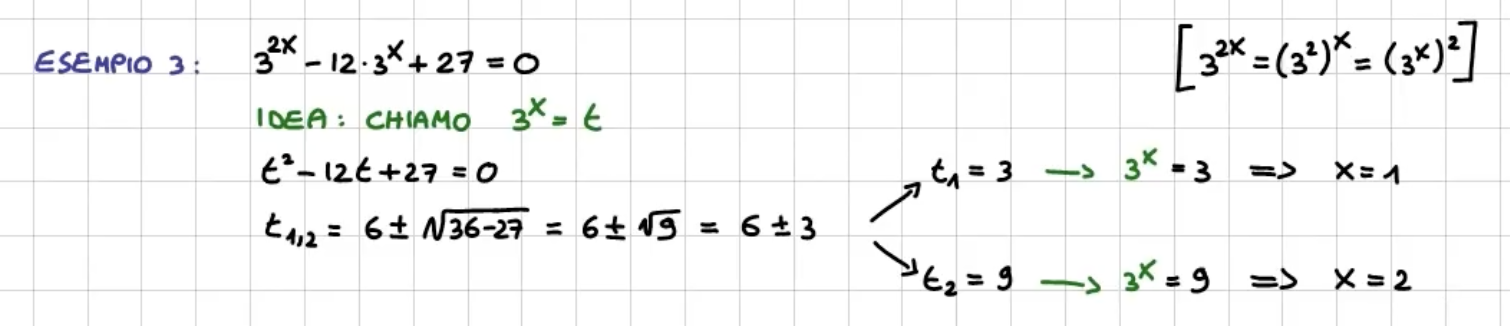 ESEMPIO 3: 3^{2x} - 12·3^x + 27 = 0 [3^{2x} = (3^2)^x = (3^x)^2]
IDEA: CHIAMO 3^x = t
t² - 12t + 27 = 0
t_{1,2} = 6 ± √(36-27) = 6 ± √9 = 6 ± 3
t_1 = 3 → 3^x = 3 => x = 1
t_2 = 9 → 3^x = 9 => x = 2